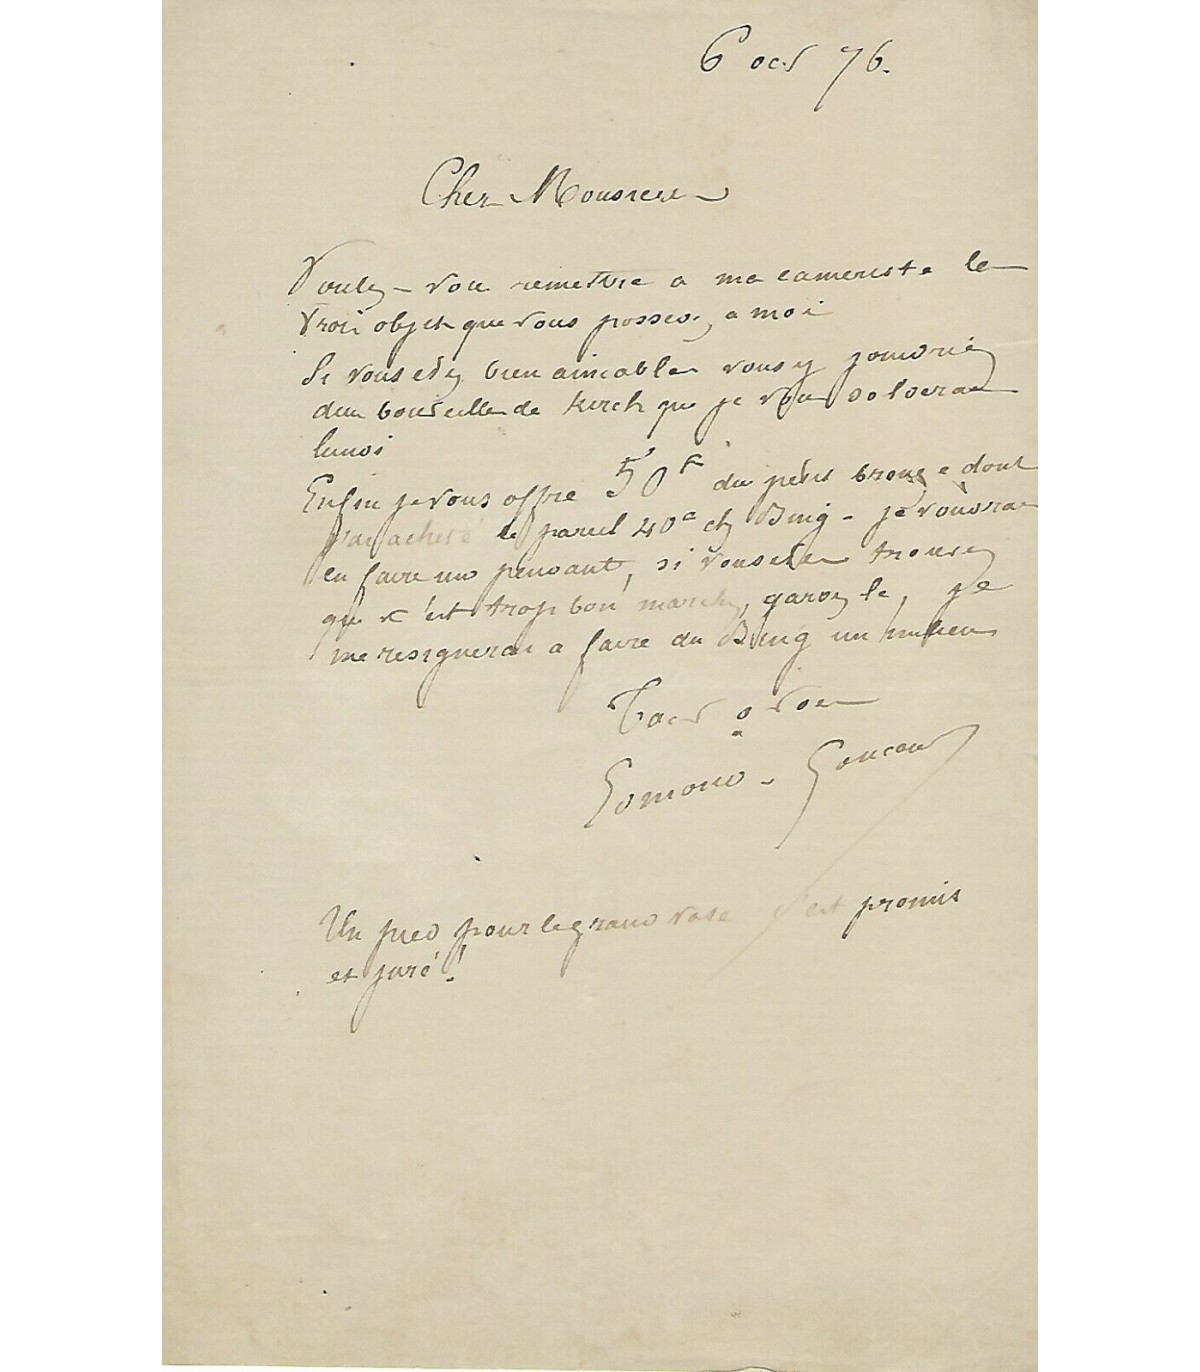 6 oct 76.
Cher Monsieur
Voulez-vous remettre a ma cameriste les
trois objets que vous possedez a moi
Si vous etiez bien aimable vous y joindriez
une bouteille de Kirch que je vous solderai
lundi
Enfin je vous offre 50f du petit bronze dont
j'ai acheté le pareil 40f chez Bing - je voudrais
en faire un pendant, si vous trouvez
que c'est trop bon marché, gardez le, je
me resignerai a faire du Bing un milieu
Tout a vous
Edmond de Goncourt
Un pied pour le grand vase c'est promis
et juré!